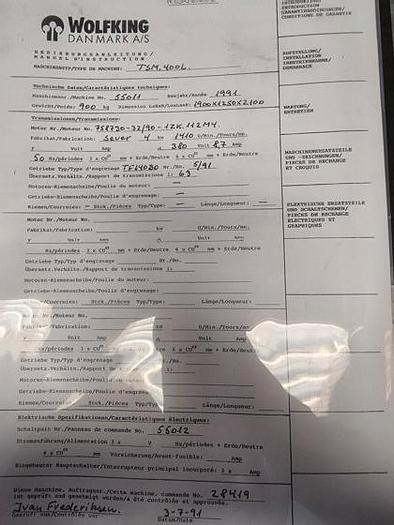 WOLFKING
DANMARK A/S
BEDIENUNGSANLEITUNG/
MANUEL D'INSTRUCTION
MASCHINENTYP/TYPE DE MACHINE: TSM 400L.
Technische Daten/Caractéristiques techniques:
Maschinennr./Machine No. 55011 Baujahr/Année 1991
Gewicht/Poids: 900 kg Dimension LxBxH/LxHxL: 1900x1250x2100
Transmissions/Transmissions:
Motor Nr./Moteur No. 758730-32/90-1ZK.112M4.
Fabrikat/Fabrication: Sever 4 kw 1410 U/Min./Tours/mn.
Y Volt Amp Δ 380 Volt 8,7 Amp
50 Hz/périodes 3 x CU mm + Erde/Neutre 6 x CU mm + Erde/Neutre
Getriebe Typ/Type d'engrenage Nr./No. 5/91
Übersetz.Verhältn./Rapport de transmissions 1: 63
Motoren-Riemenscheibe/Poulie du moteur: —
Getriebe-Riemenscheibe/Poulie d'engrenage: —
Riemen/Courroies: — Stck./Pièces Typ/Type: — Länge/Longueur: —
Motor Nr./Moteur No.
Fabrikat/Fabrication: kw U/Min./Tours/mn.
Y Volt Amp Volt Amp
Hz/périodes 3 x CU mm + Erde/Neutre 6 x CU mm + Erde/Neutre
Getriebe Typ/Typ d'engrenage Nr./No.
Übersetz.Verhältn./Rapport de transmission 1:
Motoren-Riemenscheibe/Poulie du moteur:
Getriebe-Riemenscheibe/Poulie d'engrenage:
Stck./Pièces Typ/Type: Länge/Longueur:
Motor Nr./Moteur No.
kw U/Min./Tours/mn.
Volt Amp
Hz/périodes 3 x CU mm + Erde/Neutre 6 x CU mm + Erde/Neutre
Getriebe Typ/Typ d'engrenage
Übersetz.Verhältn./Rapport de
Motoren-Riemenscheibe/Poulie du
Getriebe-Riemenscheibe/Poulie
Riemen/Courroies: Stck./Pièces Typ/Type: Länge/Longueur:
Elektrische Spezifikationen/Caractéristiques électriques:
Schaltpult Nr./Panneau de commande No. 55012
Stromzuführung/Alimentation 3 x V Hz/périodes + Erde/Neutre
4 x CU mm Vorsicherung/Avant-fusible: Amp
Eingebauter Hauptschalter/Interrupteur principal incorporé: 3 x Amp
Diese Maschine, Auftragsnr./Cette machine, commande No. 28419
ist geprüft und genehmigt worden/a été contrôlée et approuvée.
Ivan Frederiksen. 3-7-91
Geprüft von/Contrôlée par Datum/Date
INTRODUCTION
GARANTIEBEDINGUNGEN/
CONDITIONS DE GARANTIE
AUFSTELLUNG/
INSTALLATION
INBETRIEBNAHME/
DEMARRAGE
WARTUNG/
ENTRETIEN
MASCHINENERSATZTEILE
UND -ZEICHNUNGEN/
PIECES DE RECHANGE
ET CROQUIS
ELEKTRISCHE ERSATZTEILE
UND SCHALTSCHEMEN/
PIECES DE RECHANGE
ELECTRIQUES ET
GRAPHIQUES